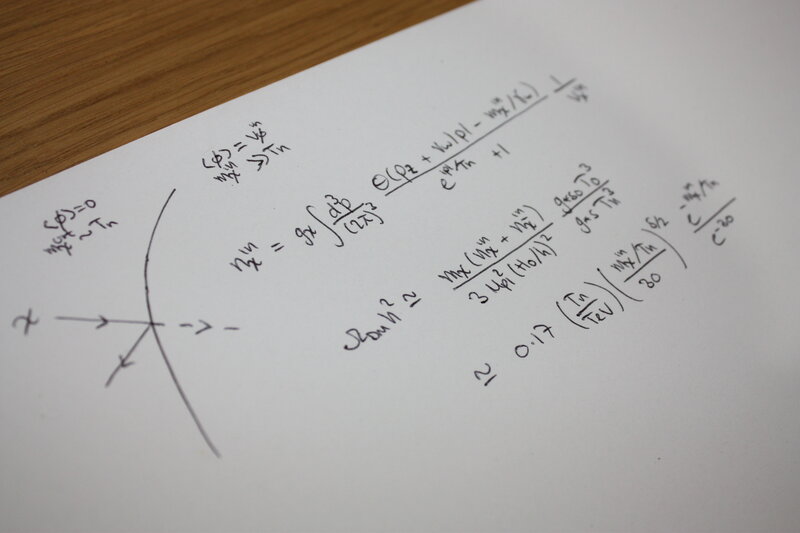 ⟨φ⟩ = 0
⟨φ⟩ = v_φ^in
≫ T_n
χ
n_χ^in = g_χ ∫ d³p/(2π)³ Θ(p_z + v_w|p| - m_χ^in/γ_w) / (e^{|p|/T_n} + 1) 1/v_w
Ω_DM h² ≃ m_χ (n_χ^in + n_χ̄^in) / (3 M_pl² (H_0/h)²) g_*s0 T_0³ / (g_*s T_n³)
≃ 0.17 (T_n/TeV) (m_χ^in/T_n / 30)^{5/2} e^{-m_χ^in/T_n} / e^{-30}